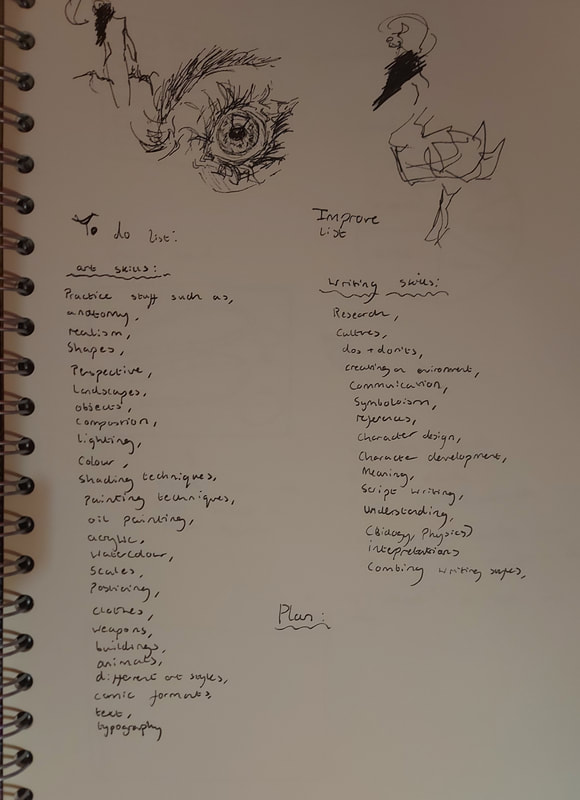 To do list:
art skills:
Practice stuff such as,
anatomy,
realism,
Shapes,
Perspective,
Landscapes,
objects,
Compostion,
lighting,
Colour,
Shading techniques,
Painting techniques,
oil painting,
acrylic,
Watercolour,
Scales,
Positiong,
clothes,
weapons,
buildings,
animals,
different art styles,
comic formats,
text,
typography
Improve
List
Writing skills:
Research,
Cultures,
dos + donts,
creating an environment,
Communication,
Symboloism,
references,
Character design,
Character development,
Meaning,
Script writing,
Understanding,
(Biology, Physics)
intepretations
Combing writing styles,
Plan: